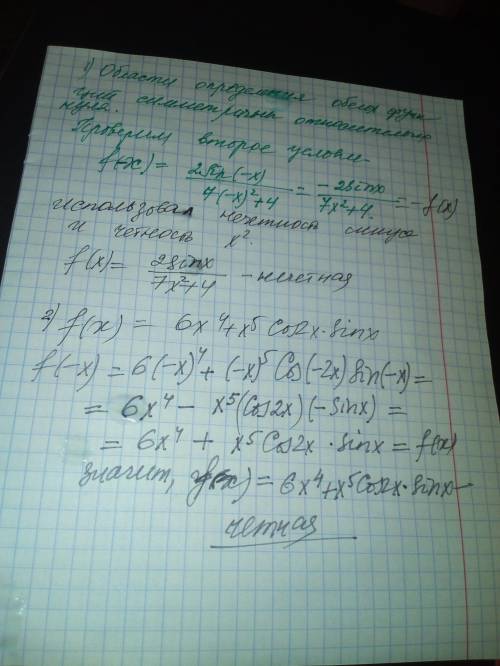 1) Области определения обеих функ
ций симметричны относительно
нуля.
Проверим второе услови-
f(-x) = 2sin(-x)/7(-x)²+4 = -2sinx/7x²+4 = -f(x)
использовал нечетность синуса
и четность x².
f(x) = 2sinx/7x²+4 - нечетная
2) f(x) = 6x⁴+x⁵ Cos2x·sinx
f(-x) = 6(-x)⁴ + (-x)⁵ Cos(-2x) sin(-x) =
= 6x⁴ - x⁵(Cos2x)(-sinx) =
= 6x⁴ + x⁵Cos2x · sinx = f(x)
значит, f(x) = 6x⁴+x⁵Cos2x·sinx-
четная